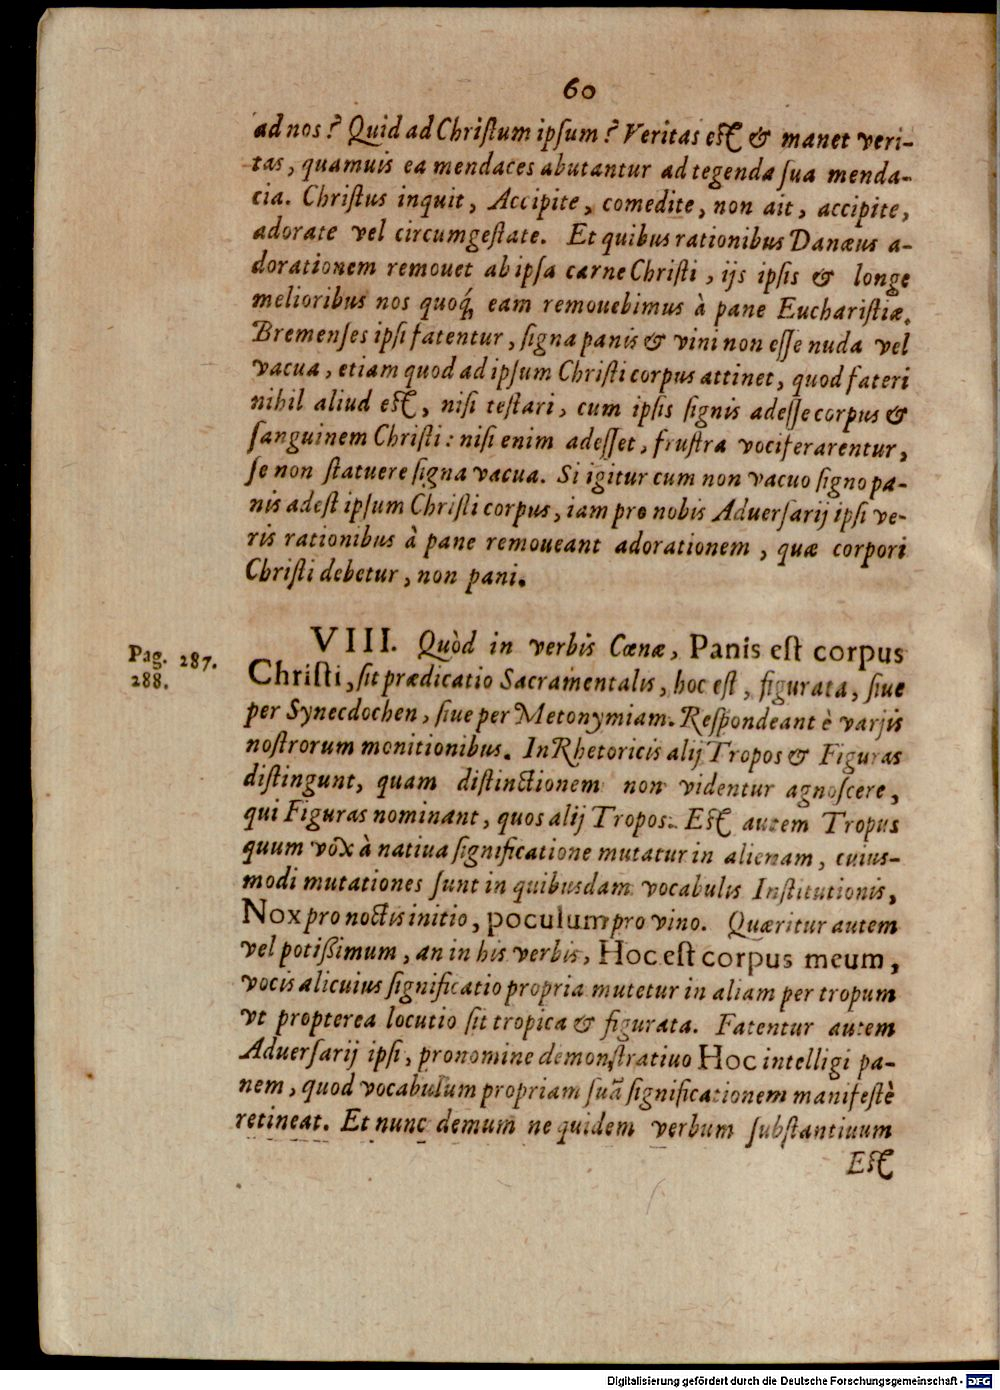 60
ad nos? Quid ad Christum ipsum? Veritas est & manet veri-
tas, quamuis ea mendaces abutantur ad tegenda sua menda-
cia. Christus inquit, Accipite, comedite, non ait, accipite,
adorate vel circumgestate. Et quibus rationibus Danæus a-
dorationem remouet ab ipsa carne Christi, ijs ipsis & longe
melioribus nos quoq́, eam remouebimus à pane Eucharistiæ.
Bremenses ipsi fatentur, signa panis & vini non esse nuda vel
vacua, etiam quod ad ipsum Christi corpus attinet, quod fateri
nihil aliud est, nisi testari, cum ipsis signis adesse corpus &
sanguinem Christi: nisi enim adesset, frustra vociferarentur,
se non statuere signa vacua. Si igitur cum non vacuo signo pa-
nis adest ipsum Christi corpus, iam pro nobis Aduersarij ipsi ve-
ris rationibus à pane remoueant adorationem, quæ corpori
Christi debetur, non pani.
Pag. 287.
288.
VIII. Quòd in verbis Cœnæ, Panis est corpus
Christi, sit prædicatio Sacramentalis, hoc est, figurata, siue
per Synecdochen, siue per Metonymiam. Respondeant è varijs
nostrorum monitionibus. In Rhetoricis alij Tropos & Figuras
distingunt, quam distinctionem non videntur agnoscere,
qui Figuras nominant, quos alij Tropos. Est autem Tropus
quum vox à natiua significatione mutatur in alienam, cuius-
modi mutationes sunt in quibusdam vocabulis Institutionis,
Nox pro noctis initio, poculum pro vino. Quæritur autem
vel potißimum, an in his verbis, Hoc est corpus meum,
vocis alicuius significatio propria mutetur in aliam per tropum
vt propterea locutio sit tropica & figurata. Fatentur autem
Aduersarij ipsi, pronomine demonstratiuo Hoc intelligi pa-
nem, quod vocabulum propriam suã significationem manifestè
retineat. Et nunc demum ne quidem verbum substantiuum
Est
Digitalisierung gefördert durch die Deutsche Forschungsgemeinschaft - DFG